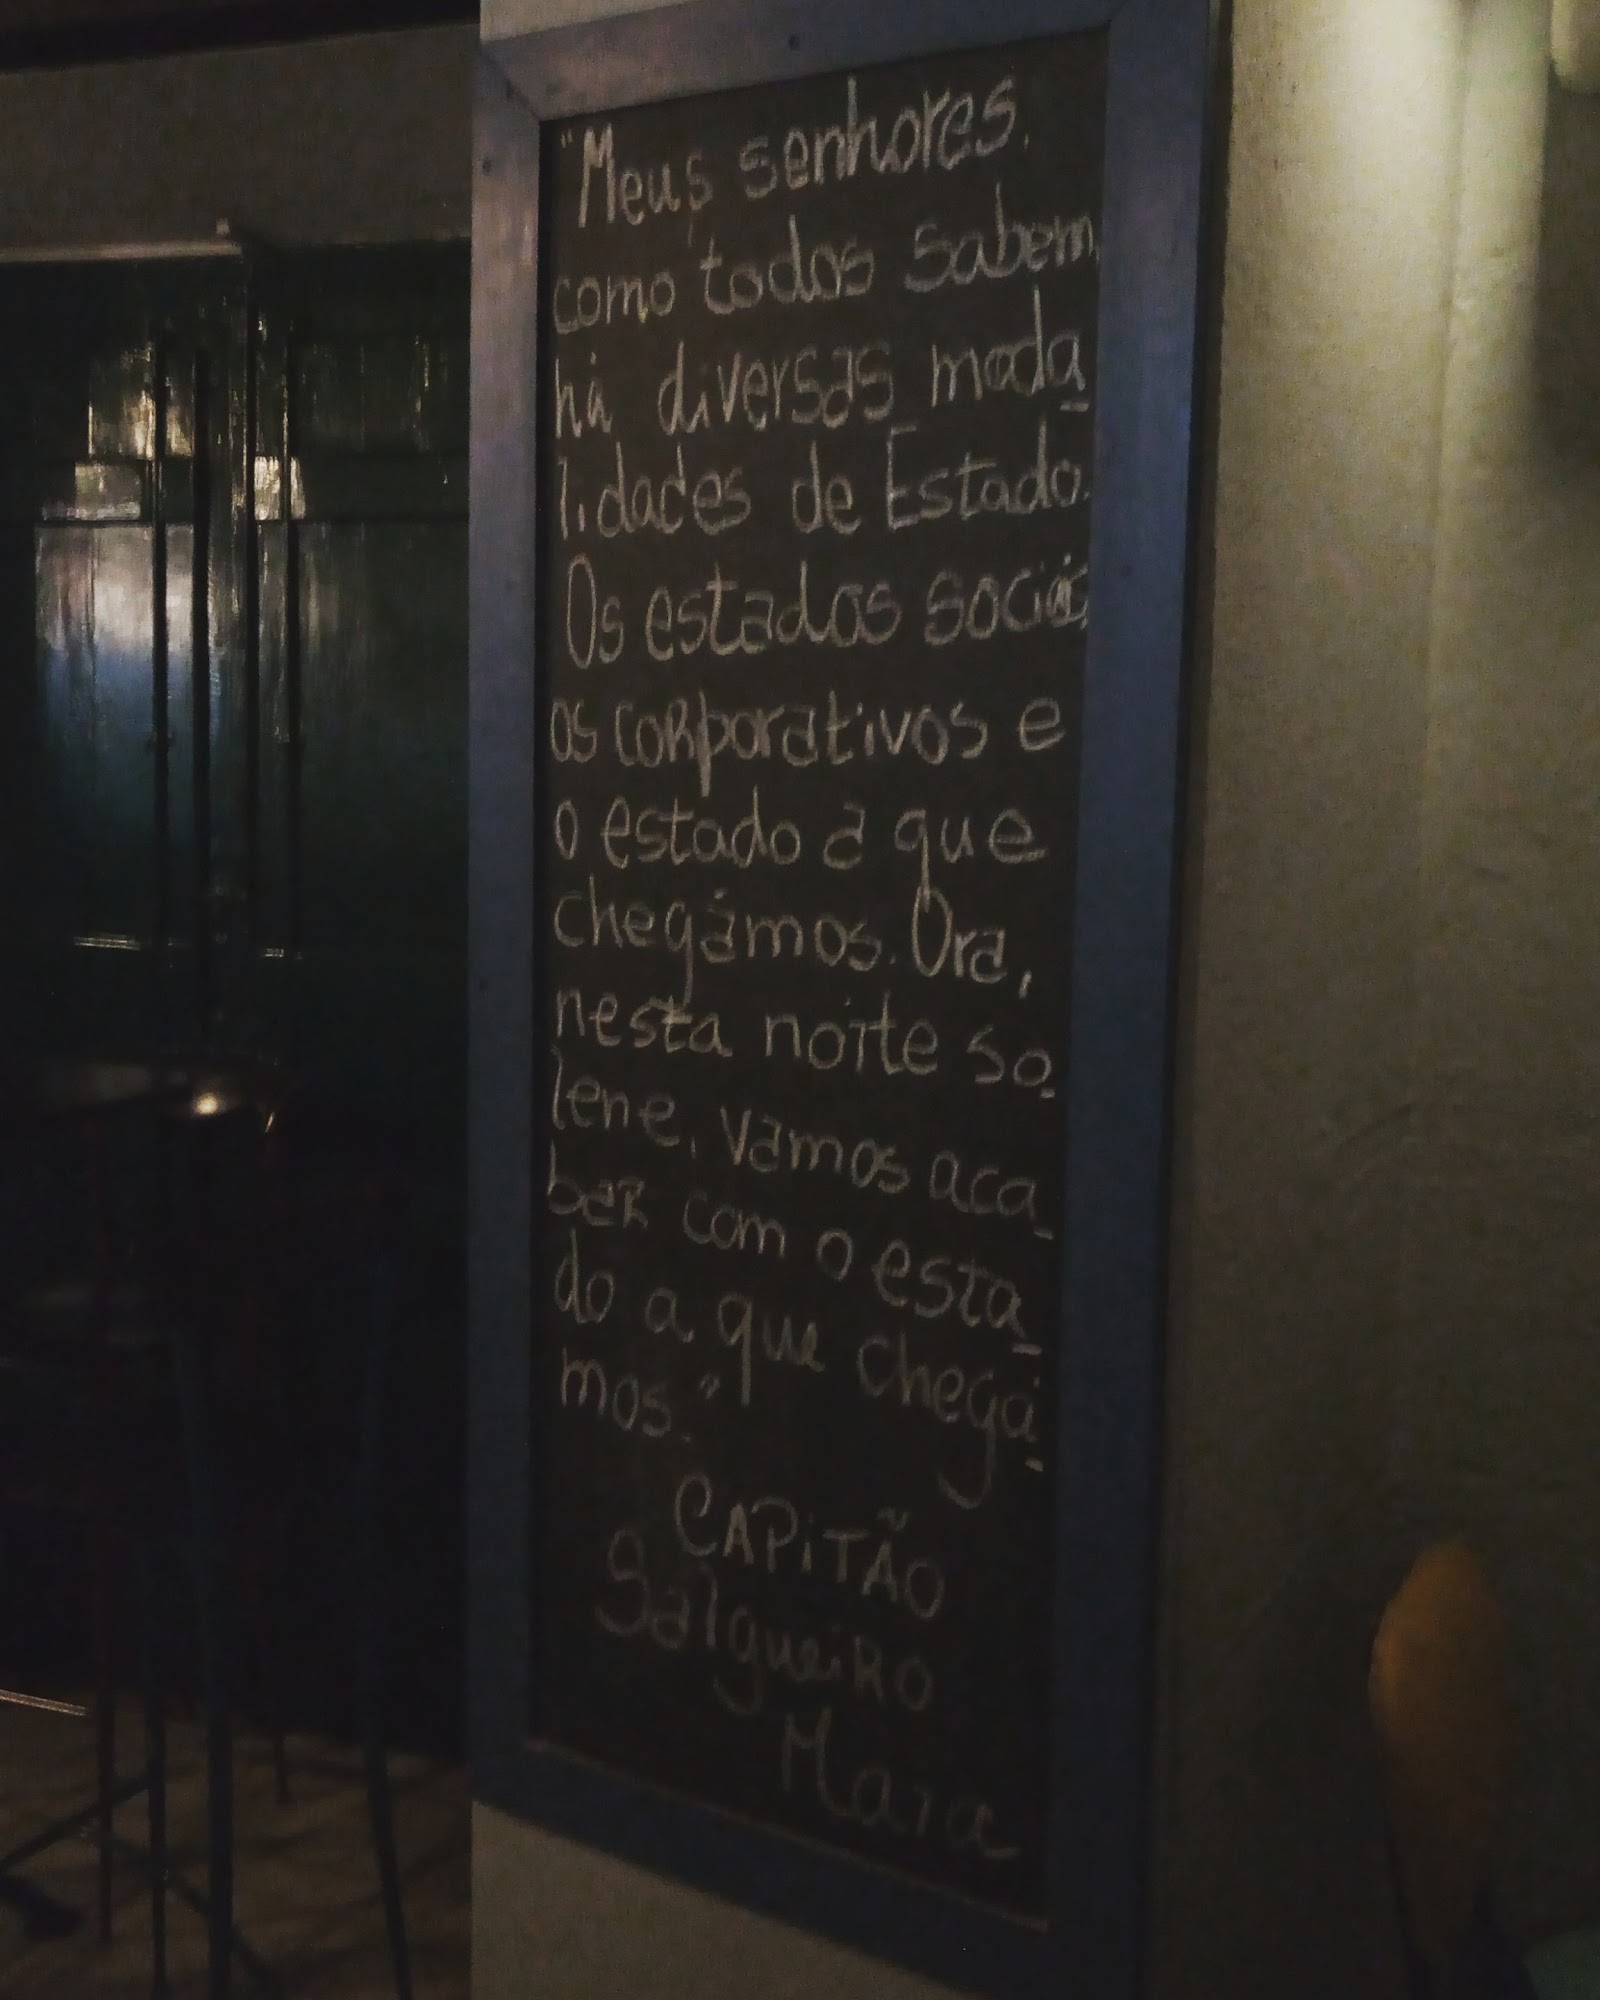 "Meus senhores,
como todos sabem,
há diversas moda
lidades de Estado.
Os estados sociais,
os corporativos e
o estado a que
chegámos. Ora,
nesta noite so-
lene, vamos aca-
bar com o esta-
do a que chegá-
mos."
CAPiTÃO
Salgueiro
Maia